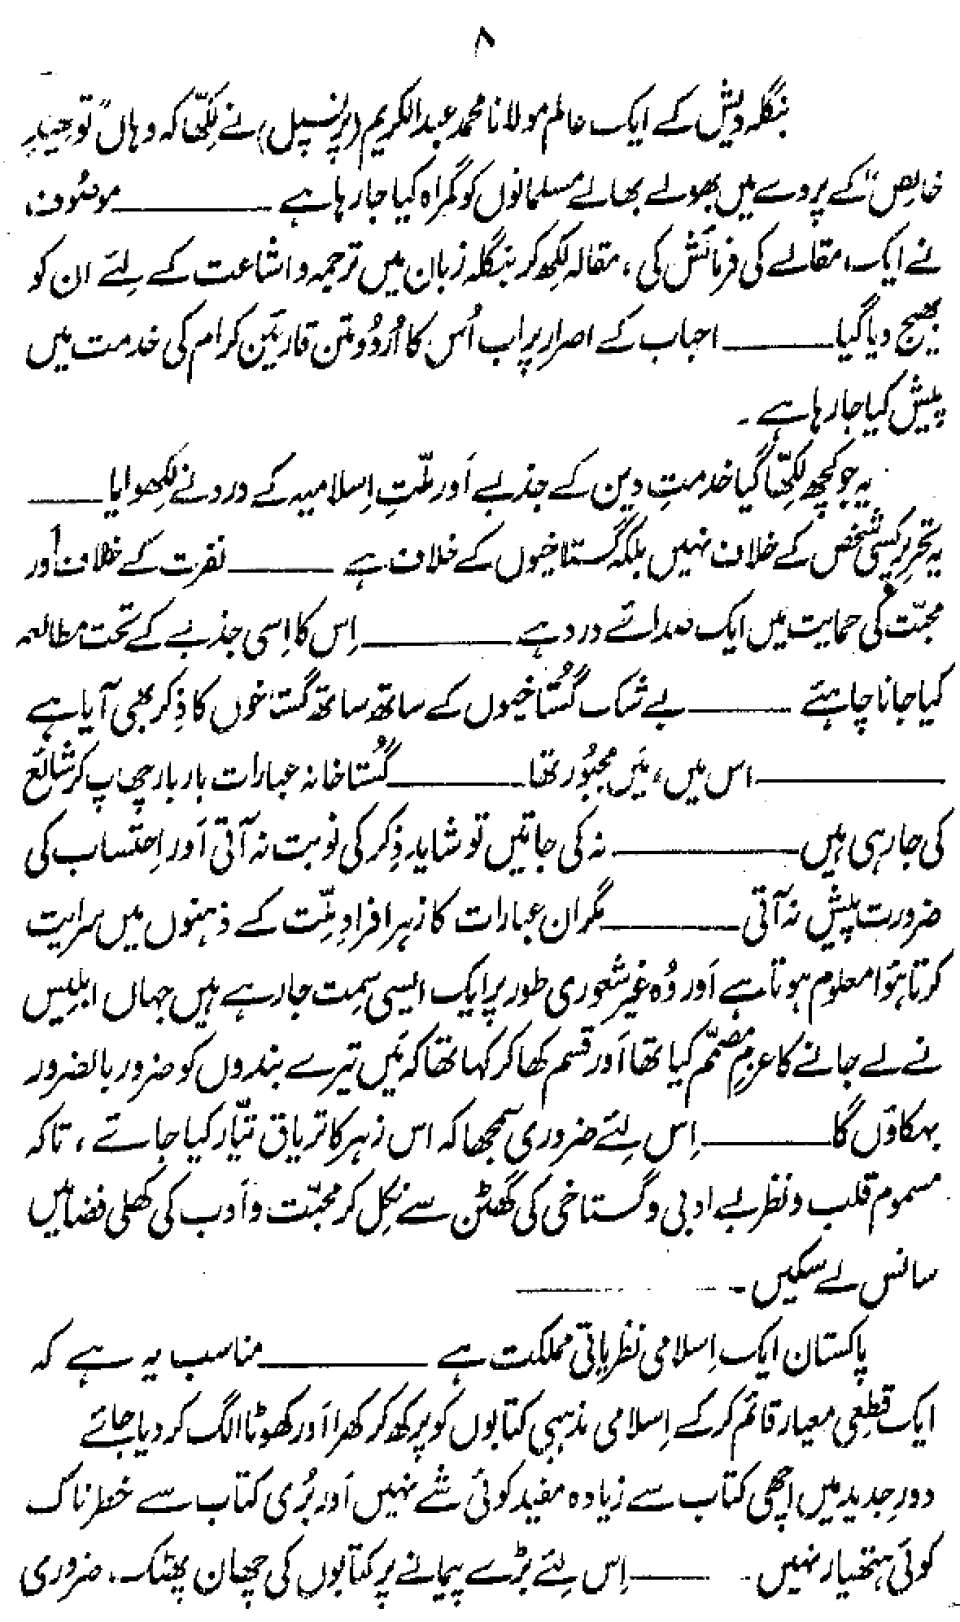 ۸
بنگلہ دیش کے ایک عالم مولانا محمد عبدالکریم (پرنسپل) نے لکھّا کہ وہاں "توحیدِ
خالِص" کے پردے میں بھولے بھالے مسلمانوں کو گمراہ کیا جا رہا ہے ــــــــــ موصُوف
نے ایک مقالے کی فرمائش کی ، مقالہ لکھ کر بنگلہ زبان میں ترجمہ و اشاعت کے لئے ان کو
بھیج دیا گیا ــــــــــ احباب کے اصرار پر اب اُس کا اُردُو متن قارئین کرام کی خدمت میں
پیش کیا جا رہا ہے ۔
یہ جو کچھ لکھّا گیا خدمتِ دین کے جذبے اَور ملّتِ اِسلامیہ کے درد نے لکھوایا ــــــــــ
یہ تحریر کسی شخص کے خلاف نہیں بلکہ گستاخیوں کے خلاف ہے ــــــــــ نفرت کے خلاف اور
محبّت کی حمایت میں ایک صدائے درد ہے ــــــــــ اِس کا اِسی جذبے کے تحت مطالعہ
کیا جانا چاہئے ــــــــــ بے شک گُستاخیوں کے ساتھ ساتھ گستاخوں کا ذِکر بھی آیا ہے
ــــــــــ اس میں ، مَیں مجبُور تھا ــــــــــ گُستاخانہ عبارات بار بار چھاپ کر شائع
کی جا رہی ہیں ــــــــــ نہ کی جاتیں تو شاید ذِکر کی نوبت نہ آتی اَور اِحتساب کی
ضرورت پیش نہ آتی ــــــــــ مگر ان عبارات کا زہر افرادِ ملّت کے ذہنوں میں سرایت
کرتا ہُوا معلوم ہوتا ہے اَور وُہ غیر شعُوری طور پر ایک ایسی سِمت جا رہے ہیں جہاں ابلیس
نے لے جانے کا عزمِ مصمّم کیا تھا اَور قسم کھا کر کہا تھا کہ مَیں تیرے بندوں کو ضرور بالضرور
بہکاؤں گا ــــــــــ اِس لئے ضروری سمجھا کہ اس زہر کا تریاق تیّار کیا جائے ، تاکہ
مسموم قلب و نظر بے ادبی و گستاخی کی گھٹن سے نِکل کر محبّت و اَدب کی کھلی فضا میں
سانس لے سکیں ۔ ــــــــــ
پاکستان ایک اِسلامی نظریاتی مملکت ہے ــــــــــ مناسب یہ ہے کہ
ایک قطعِی معیار قائم کر کے اِسلامی مذہبی کتابوں کو پرکھ کر کھرا اَور کھوٹا الگ کر دیا جائے
دورِ جدید میں اچھی کتاب سے زیادہ مفید کوئی شے نہیں اَور بُری کتاب سے خطرناک
کوئی ہتھیار نہیں ۔ ــــــــــ اِس لئے بڑے پیمانے پر کتابوں کی چھان پھٹک ضروری